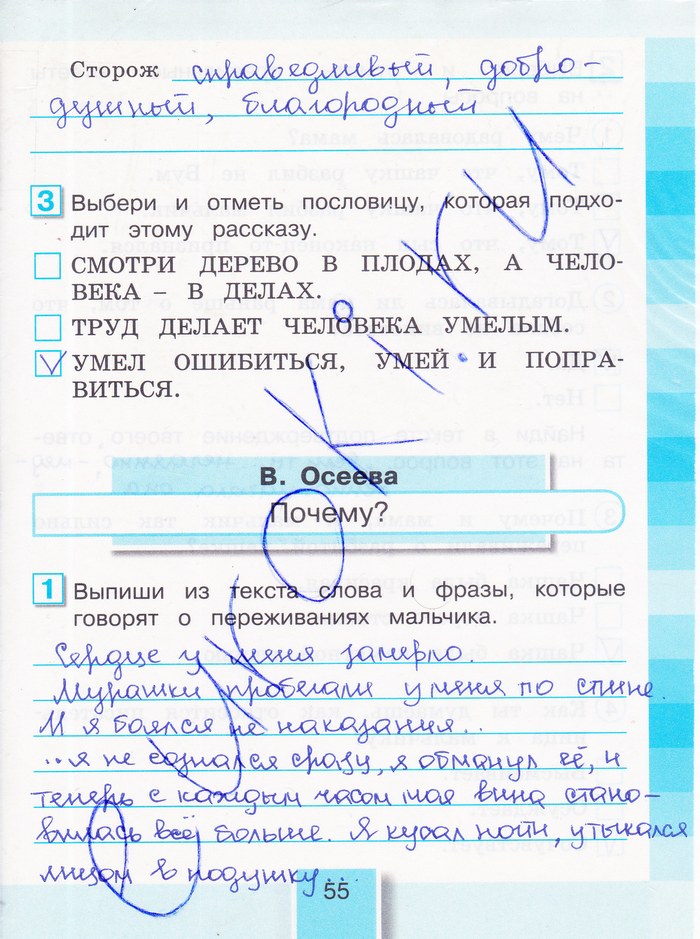 Сторож справедливый, добро-
душный, благородный
3 Выбери и отметь пословицу, которая подхо-
дит этому рассказу.
СМОТРИ ДЕРЕВО В ПЛОДАХ, А ЧЕЛО-
ВЕКА – В ДЕЛАХ.
ТРУД ДЕЛАЕТ ЧЕЛОВЕКА УМЕЛЫМ.
УМЕЛ ОШИБИТЬСЯ, УМЕЙ И ПОПРА-
ВИТЬСЯ.
В. Осеева
Почему?
1 Выпиши из текста слова и фразы, которые
говорят о переживаниях мальчика.
Сердце у меня замерло.
Мурашки пробегали у меня по спине.
И я боялся не наказания...
...я не сознался сразу, я обманул её, и
теперь с каждым часом моя вина стано-
вилась всё больше. Я кусал ногти, утыкался
лицом в подушку...
55